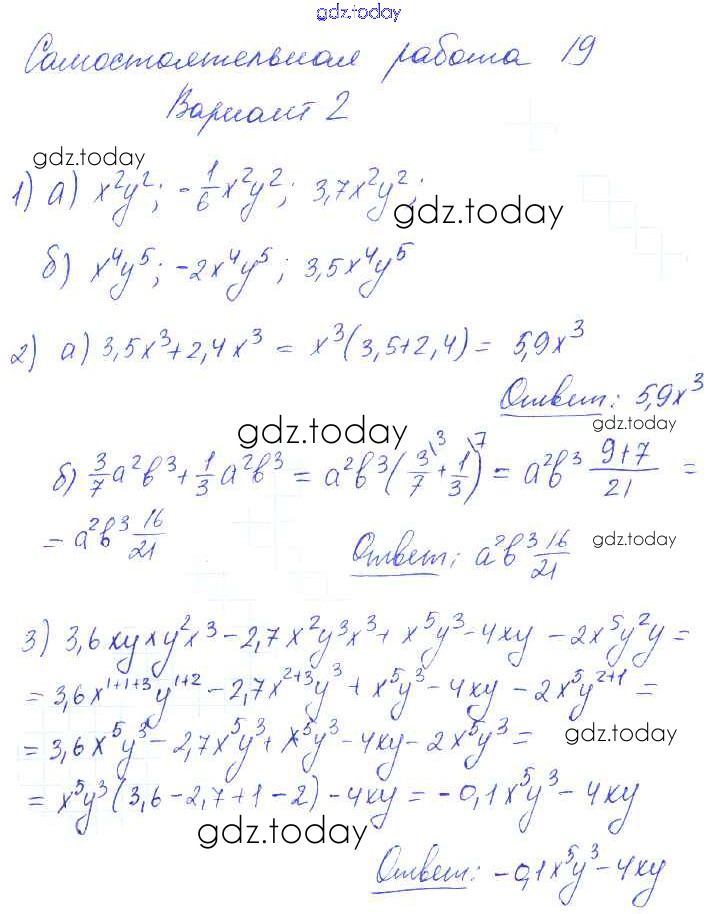 gdz.today
Самостоятельная работа 19
Вариант 2
gdz.today
1) а) x²y²; -1/6x²y²; 3,7x²y²;
gdz.today
б) x⁴y⁵; -2x⁴y⁵; 3,5x⁴y⁵
2) а) 3,5x³+2,4x³ = x³(3,5+2,4) = 5,9x³
Ответ: 5,9x³
gdz.today
gdz.today
б) 3/7a²b³+1/3a²b³ = a²b³(3/7\3+1/3\7) = a²b³ (9+7)/21 =
= a²b³ 16/21
Ответ: a²b³ 16/21
gdz.today
3) 3,6xyxy²x³ - 2,7x²y³x³ + x⁵y³ - 4xy - 2x⁵y²y =
= 3,6x¹⁺¹⁺³y¹⁺² - 2,7x²⁺³y³ + x⁵y³ - 4xy - 2x⁵y²⁺¹ =
= 3,6x⁵y³ - 2,7x⁵y³ + x⁵y³ - 4xy - 2x⁵y³ =
gdz.today
= x⁵y³(3,6 - 2,7 + 1 - 2) - 4xy = -0,1x⁵y³ - 4xy
gdz.today
Ответ: -0,1x⁵y³ - 4xy